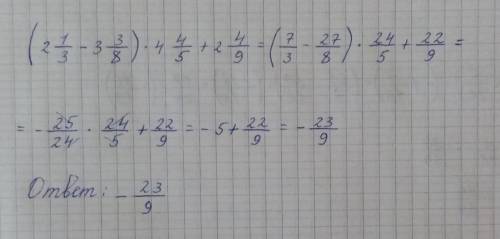 (2 1/3 - 3 3/8) · 4 4/5 + 2 4/9 = (7/3 - 27/8) · 24/5 + 22/9 =
= - 25/24 · 24/5 + 22/9 = - 5 + 22/9 = - 23/9
Ответ: - 23/9